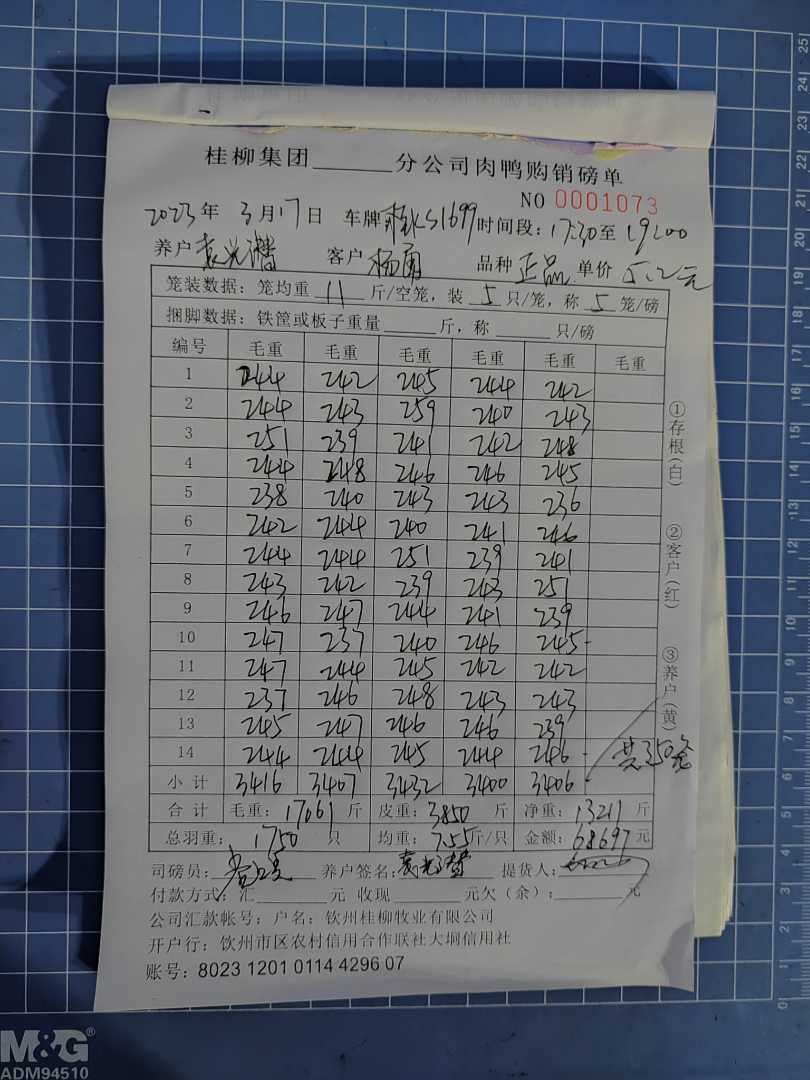 桂柳集团______分公司肉鸭购销磅单
NO 0001073
2023年 3月17日 车牌 桂KS1699 时间段：17:30至19:00
养户 袁光潜 客户 杨勇 品种 正品 单价 5.2元
笼装数据：笼均重 11 斤/空笼，装 5 只/笼，称 5 笼/磅
捆脚数据：铁筐或板子重量______斤，称______只/磅
编号 毛重 毛重 毛重 毛重 毛重 毛重
1 244 242 245 244 242
2 244 243 259 240 243
3 251 239 241 242 248
4 244 248 246 246 245
5 238 240 243 243 236
6 242 244 240 241 246
7 244 244 251 239 241
8 243 242 239 243 251
9 246 247 244 241 239
10 247 237 240 246 245
11 247 244 245 242 242
12 237 246 248 243 243
13 245 247 246 246 239
14 244 244 245 244 246
共350笼
小计 3416 3407 3432 3400 3406
合计 毛重：17061斤 皮重：3850斤 净重：13211斤
总羽重：1750只 均重：7.55斤/只 金额：68697元
司磅员： 养户签名：袁光潜 提货人：
付款方式：汇______元 收现______元欠（余）：______元
公司汇款帐号：户名：钦州桂柳牧业有限公司
开户行：钦州市区农村信用合作联社大垌信用社
账号：8023 1201 0114 4296 07
①存根（白）
②客户（红）
③养户（黄）
25
24
23
22
21
20
19
18
17
16
15
14
13
12
11
10
9
8
7
6
5
4
3
2
1
0
M&G®
ADM94510